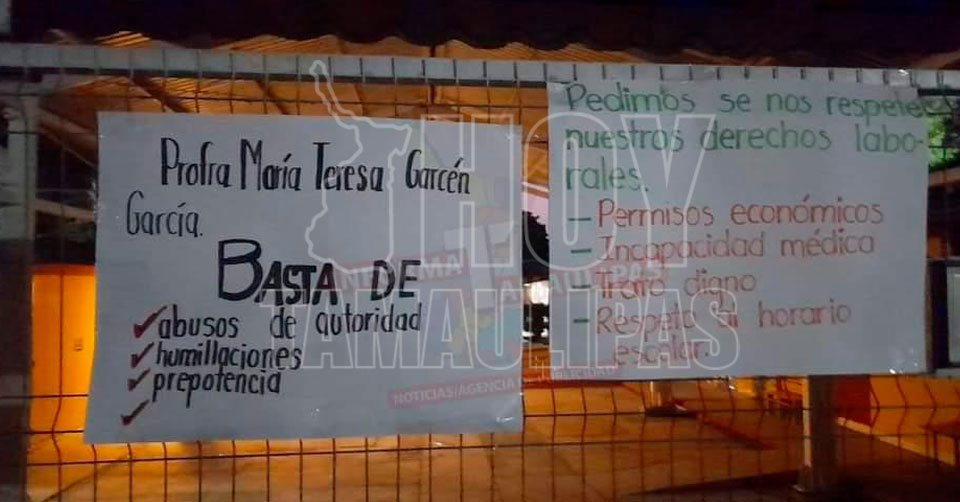 Profra María Teresa Garcén
García.
BASTA DE
abusos de autoridad
humillaciones
prepotencia
Pedimos se nos respeten
nuestros derechos labo-
rales.
- Permisos económicos
- Incapacidad médica
- Trato digno
- Respeto al horario
escolar.
HOY
TAMAULIPAS
NOTICIAS/AGENCIA DE PUBLICIDAD